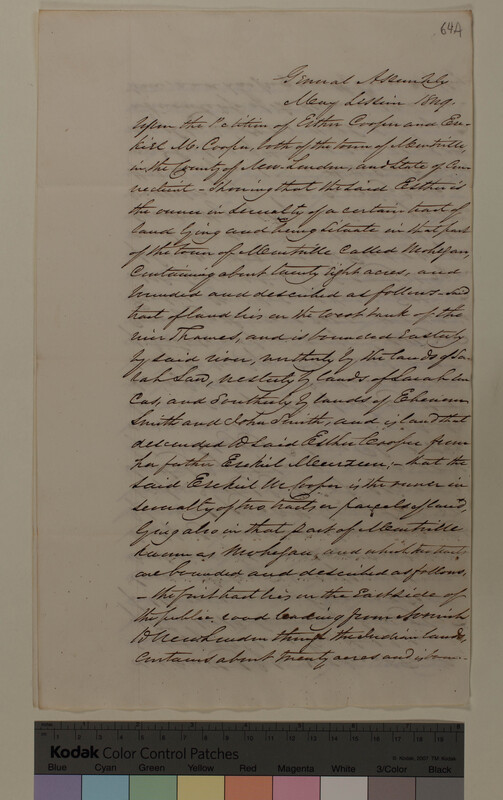 64A
General Assembly
May Session 1849.
Upon the Petition of Esther Cooper and Eze-
kiel M. Cooper, both of the town of Montville,
in the County of New London, and State of Con-
necticut - Showing that the said Esther is
the owner in severalty of a certain tract of
land lying and being situate in that part
of the town of Montville called Mohegan,
Containing about twenty eight acres, and
bounded and described as follows - Said
tract of land lies on the West bank of the
river Thames, and is bounded Easterly
by said river, northerly by the lands of Sa-
rah , westerly by lands of Sarah Un-
cas, and Southerly by lands of Ebenezer
Smith and John Smith, and is land that
descended to said Esther Cooper from
her father Ezekiel ; - that the
said Ezekiel M. Cooper is the owner in
severalty of two tracts or parcels of land,
lying also in that part of Montville
known as Mohegan, and which two tracts
are bounded and described as follows,
- the first tract lies on the East side of
the public road leading from Norwich
to New London through the Indian lands,
Contains about twenty acres and is boun-
Kodak Color Control Patches
© Kodak, 2007 TM: Kodak
Blue Cyan Green Yellow Red Magenta White 3/Color Black